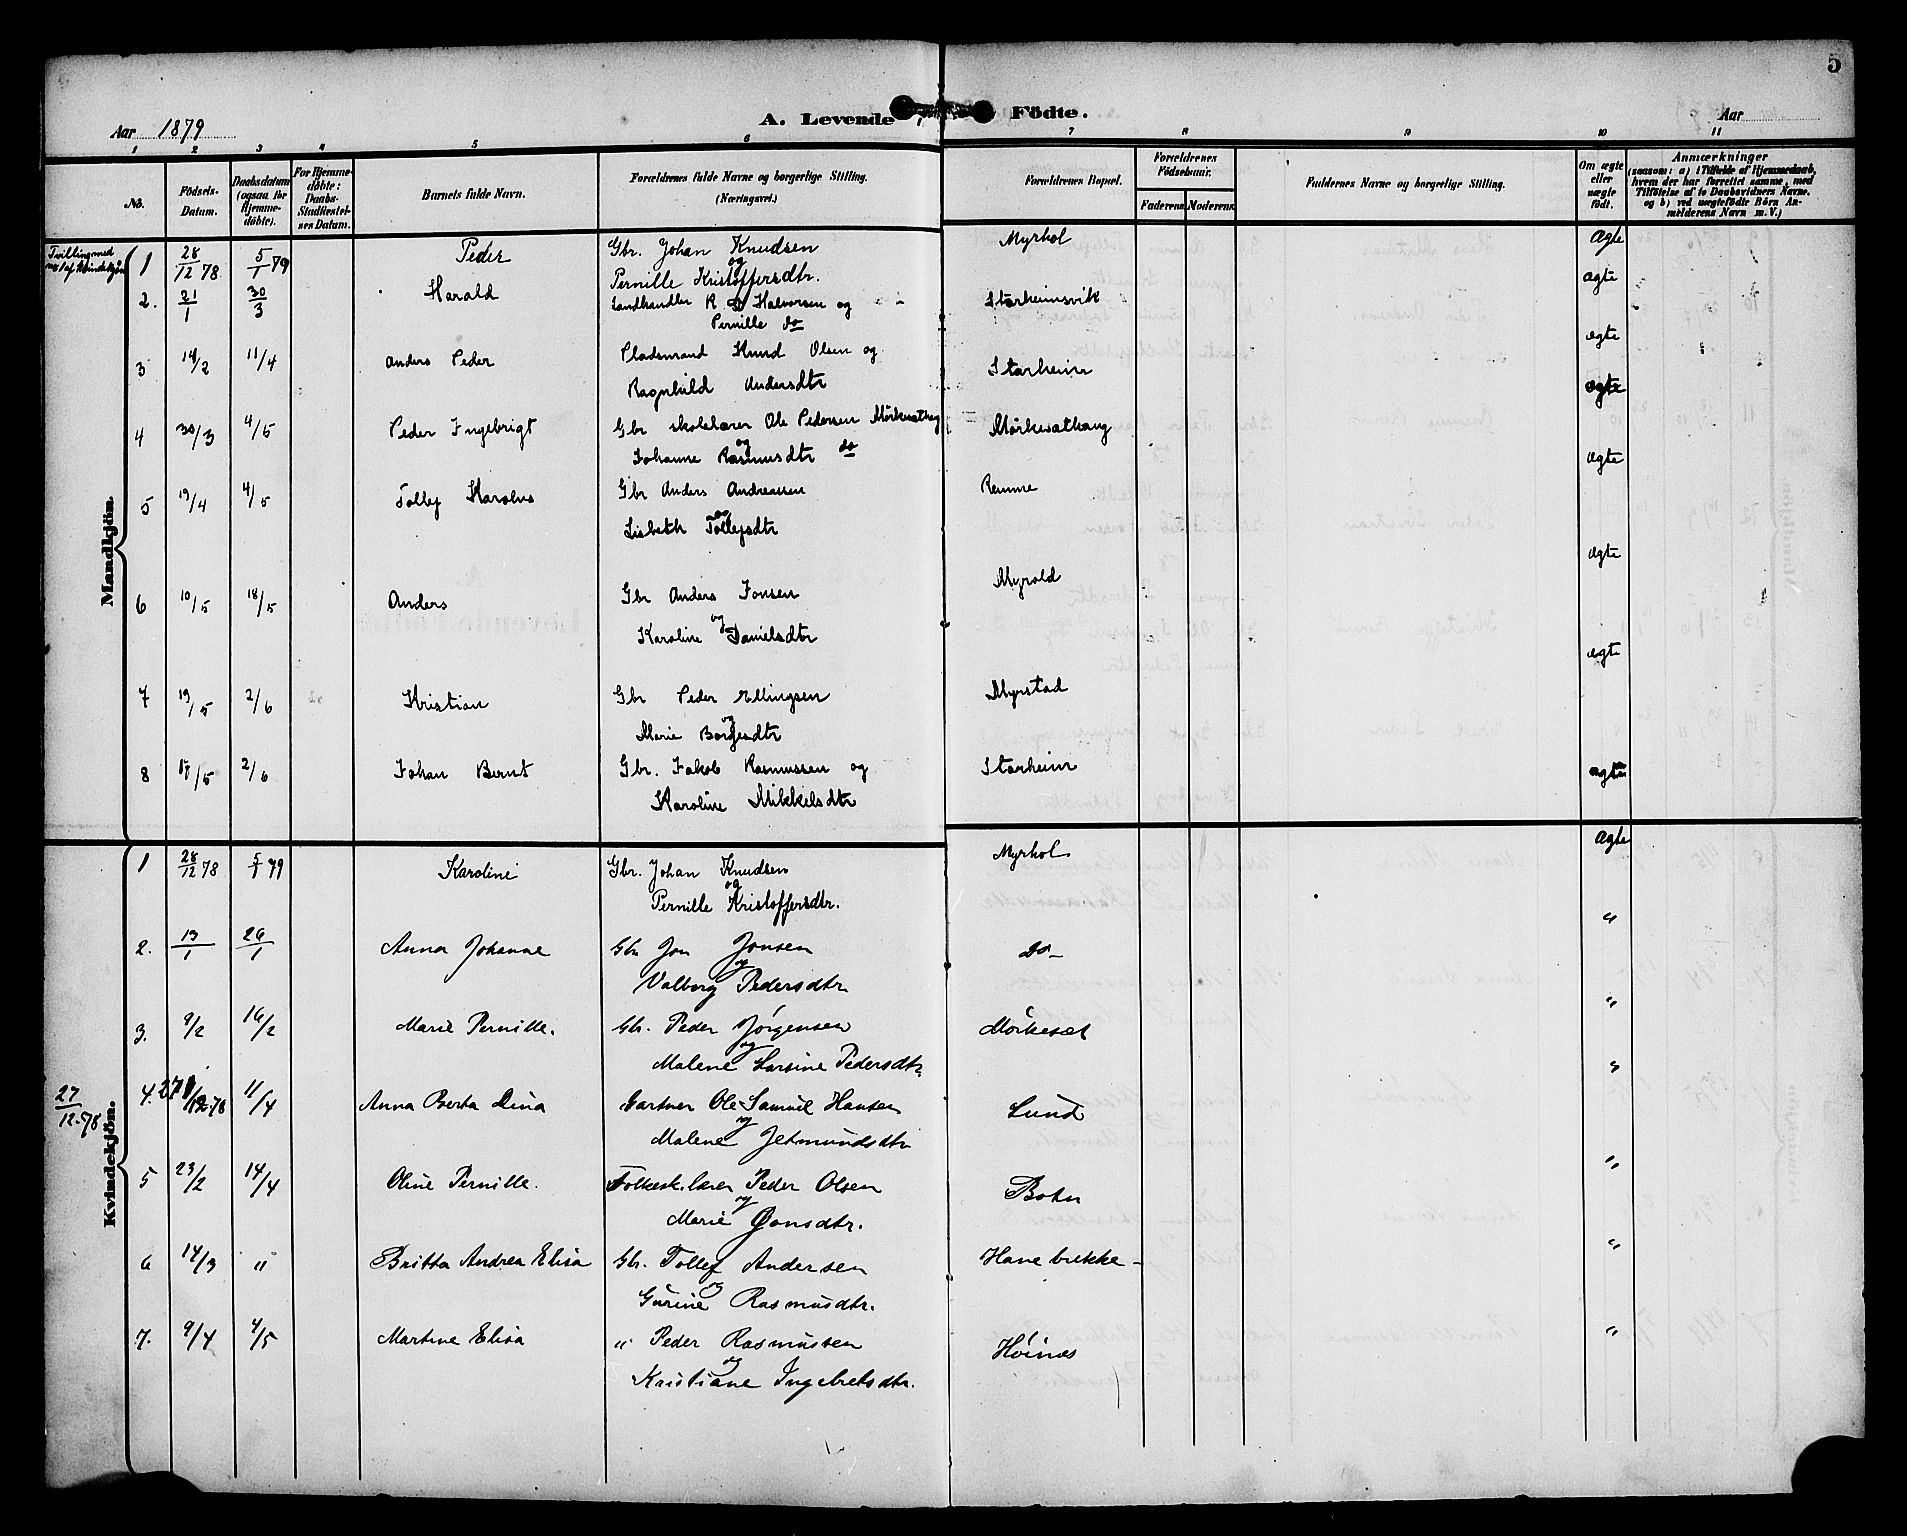 5
Aar 1879
A. Levende Födte.
Aar
1 2 3 4 5 6 7 8 9 10 11
No.
Födsels-
Datum.
Daabsdatum
(ogsaa for
Hjemme-
döbte).
For Hjemme-
döbte:
Daabs-
Stadfæstel-
ses Datum.
Barnets fulde Navn.
Forældrenes fulde Navne og borgerlige Stilling.
(Næringsvei.)
Forældrenes Bopæl.
Forældrenes
Födselsaar.
Faderens. Moderens.
Faddernes Navne og borgerlige Stilling.
Om ægte
eller
uægte
födt.
Anmærkninger
(saasom: a) i Tilfælde af Hjemmedaab,
hvem der har forrettet samme, med
Tilföielse af to Daabsvidners Navne,
og b) ved uægtefödte Börn An-
melderens Navn m. V.)
Mandkjön.
Tvilling med
no 1 af Kvindekjön
1 28/12 78 5/1 79 Peder Gbr. Johan Knudsen Myrhol Ægte
og
Pernille Kristoffersdtr. ægte
2. 21/1 30/3 Harald Landhandler R. D Halvorsen og Starheimsvik
Pernille do ægte
3 14/2 11/4 Anders Peder Pladsmand Knud Olsen og Starheim
Ragnhild Andersdtr ægte
4 30/3 4/5 Peder Ingebrigt Gbr skolelærer Ole Pedersen Mörkesathaug Mörkesathaug
og
Johanne Rasmusdtr do ægte
5 19/4 4/5 Tollef Karolus Gbr Anders Andreassen Remme
og
Lisbeth Tollefsdtr ægte
6 10/5 18/5 Anders Gbr Anders Jonsen Myrold
og
Karoline Danielsdtr ægte
7 19/5 2/6 Kristian Gbr Peder Ellingsen Myrstad
og
Marie Borgesdtr
8 17/5 2/6 Johan Bernt Gbr. Jakob Rasmussen og Starheim ægte
Karoline Mikkelsdtr
Kvindekjön.
1 28/12 78 5/1 79 Karoline Gbr. Johan Knudsen Myrhol Ægte
og
Pernille Kristoffersdtr. "
2. 13/1 26/1 Anna Johanne Gbr Jon Jonsen do-
og
Valborg Pedersdtr "
3. 9/2 16/2 Marie Pernille. Gbr. Peder Jörgensen Mörkesæt
og
Malene Larsine Pedersdtr. "
27/12-78
4. 27/12-78 11/4 Anna Berta Lina Gartner Ole Samuel Hansen Lund
og
Malene Jetmundsdtr "
5 23/2 14/4 Oline Pernille. Folkesk.lærer Peder Olsen Botn
og
Marie Jonsdtr. "
6 14/3 " Britta Andrea Elisa Gbr. Tollef Andersen Hanebrekke-
og
Gurine Rasmusdtr. "
7. 9/4 4/5 Martine Elisa " Peder Rasmussen Höinæs
og
Kristiane Ingebretsdtr.